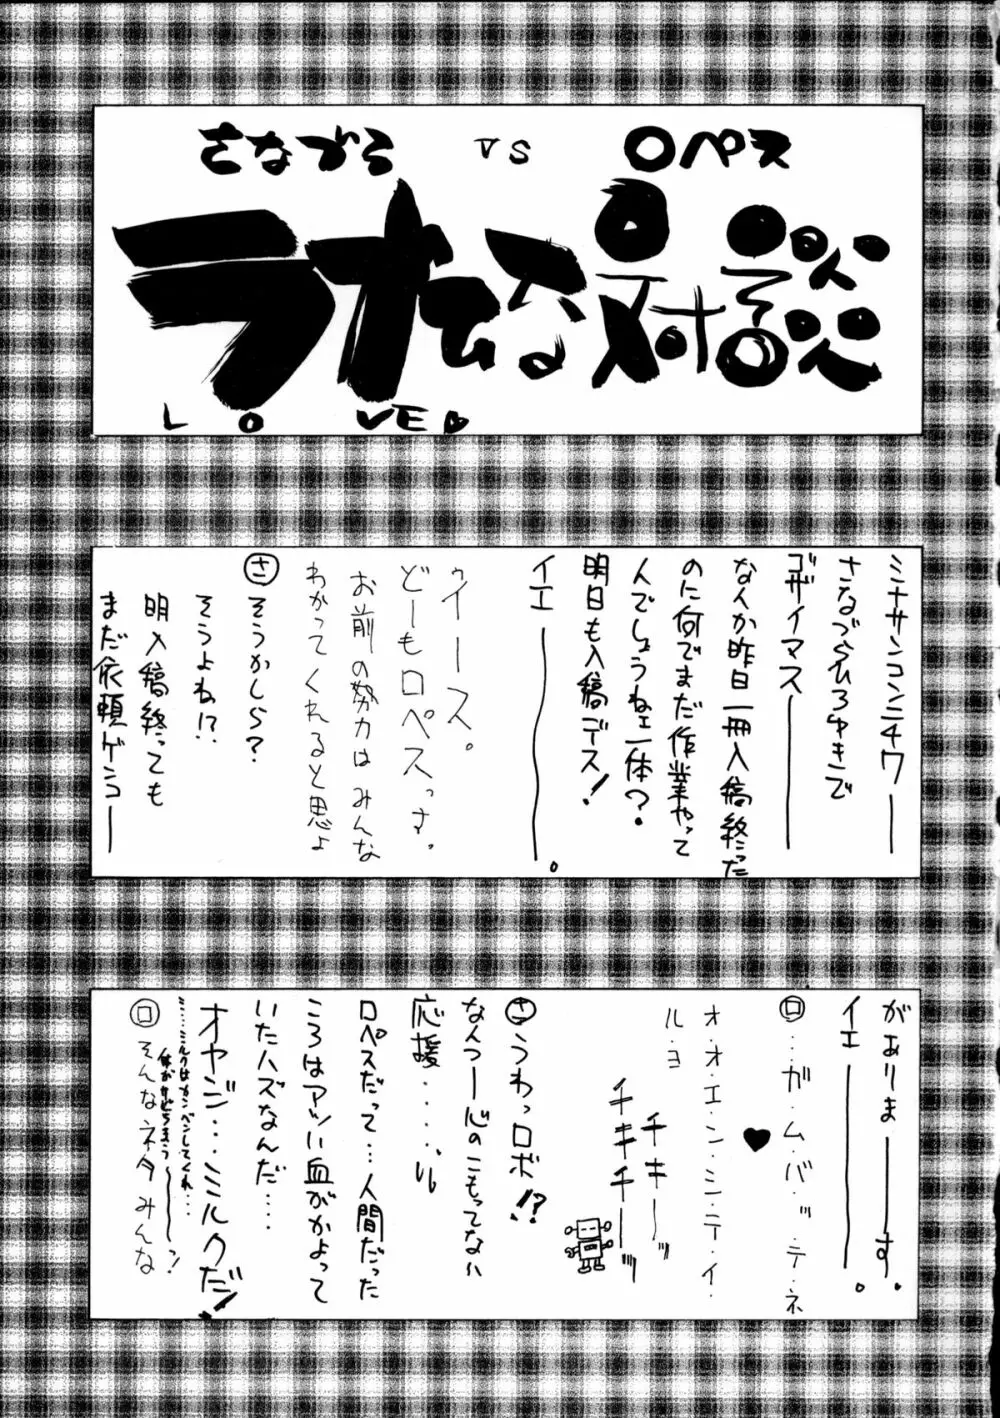 さなづら VS ロペス
ラオむふ対談
LOVE♥
ミナサンコンニチワ――
さなづらひろゆきで
ゴザイマス――
なんか昨日一冊入稿終った
のに何でまだ作業やって
んでしょうねェ一体?
明日も入稿デス!
イエ――。
ゥイース。
どーもロペスっす。
お前の努力はみんな
わかってくれると思よ
さ そうかしら?
そうよね!?
明入稿終っても
まだ依頼ゲンコ――
がありま――す。
イエ――。
ロ …ガ・ム・バ・ッ・テ・ネ
♥
オ・オ・エ・ン・シ・テ・イ・
ル・ヨ
チキーッ
チキチーッ
さ うわっロボ!?
なんつー心のこもってない
応援……い。
ロペスだって…人間だった
ころはアツい血がかよって
いたハズなんだ……
オヤジ…ミルクだ!
ミ……ミルクはカンベンしてくれ…
体がさびちまう――っ!
ロ そんなネタみんな